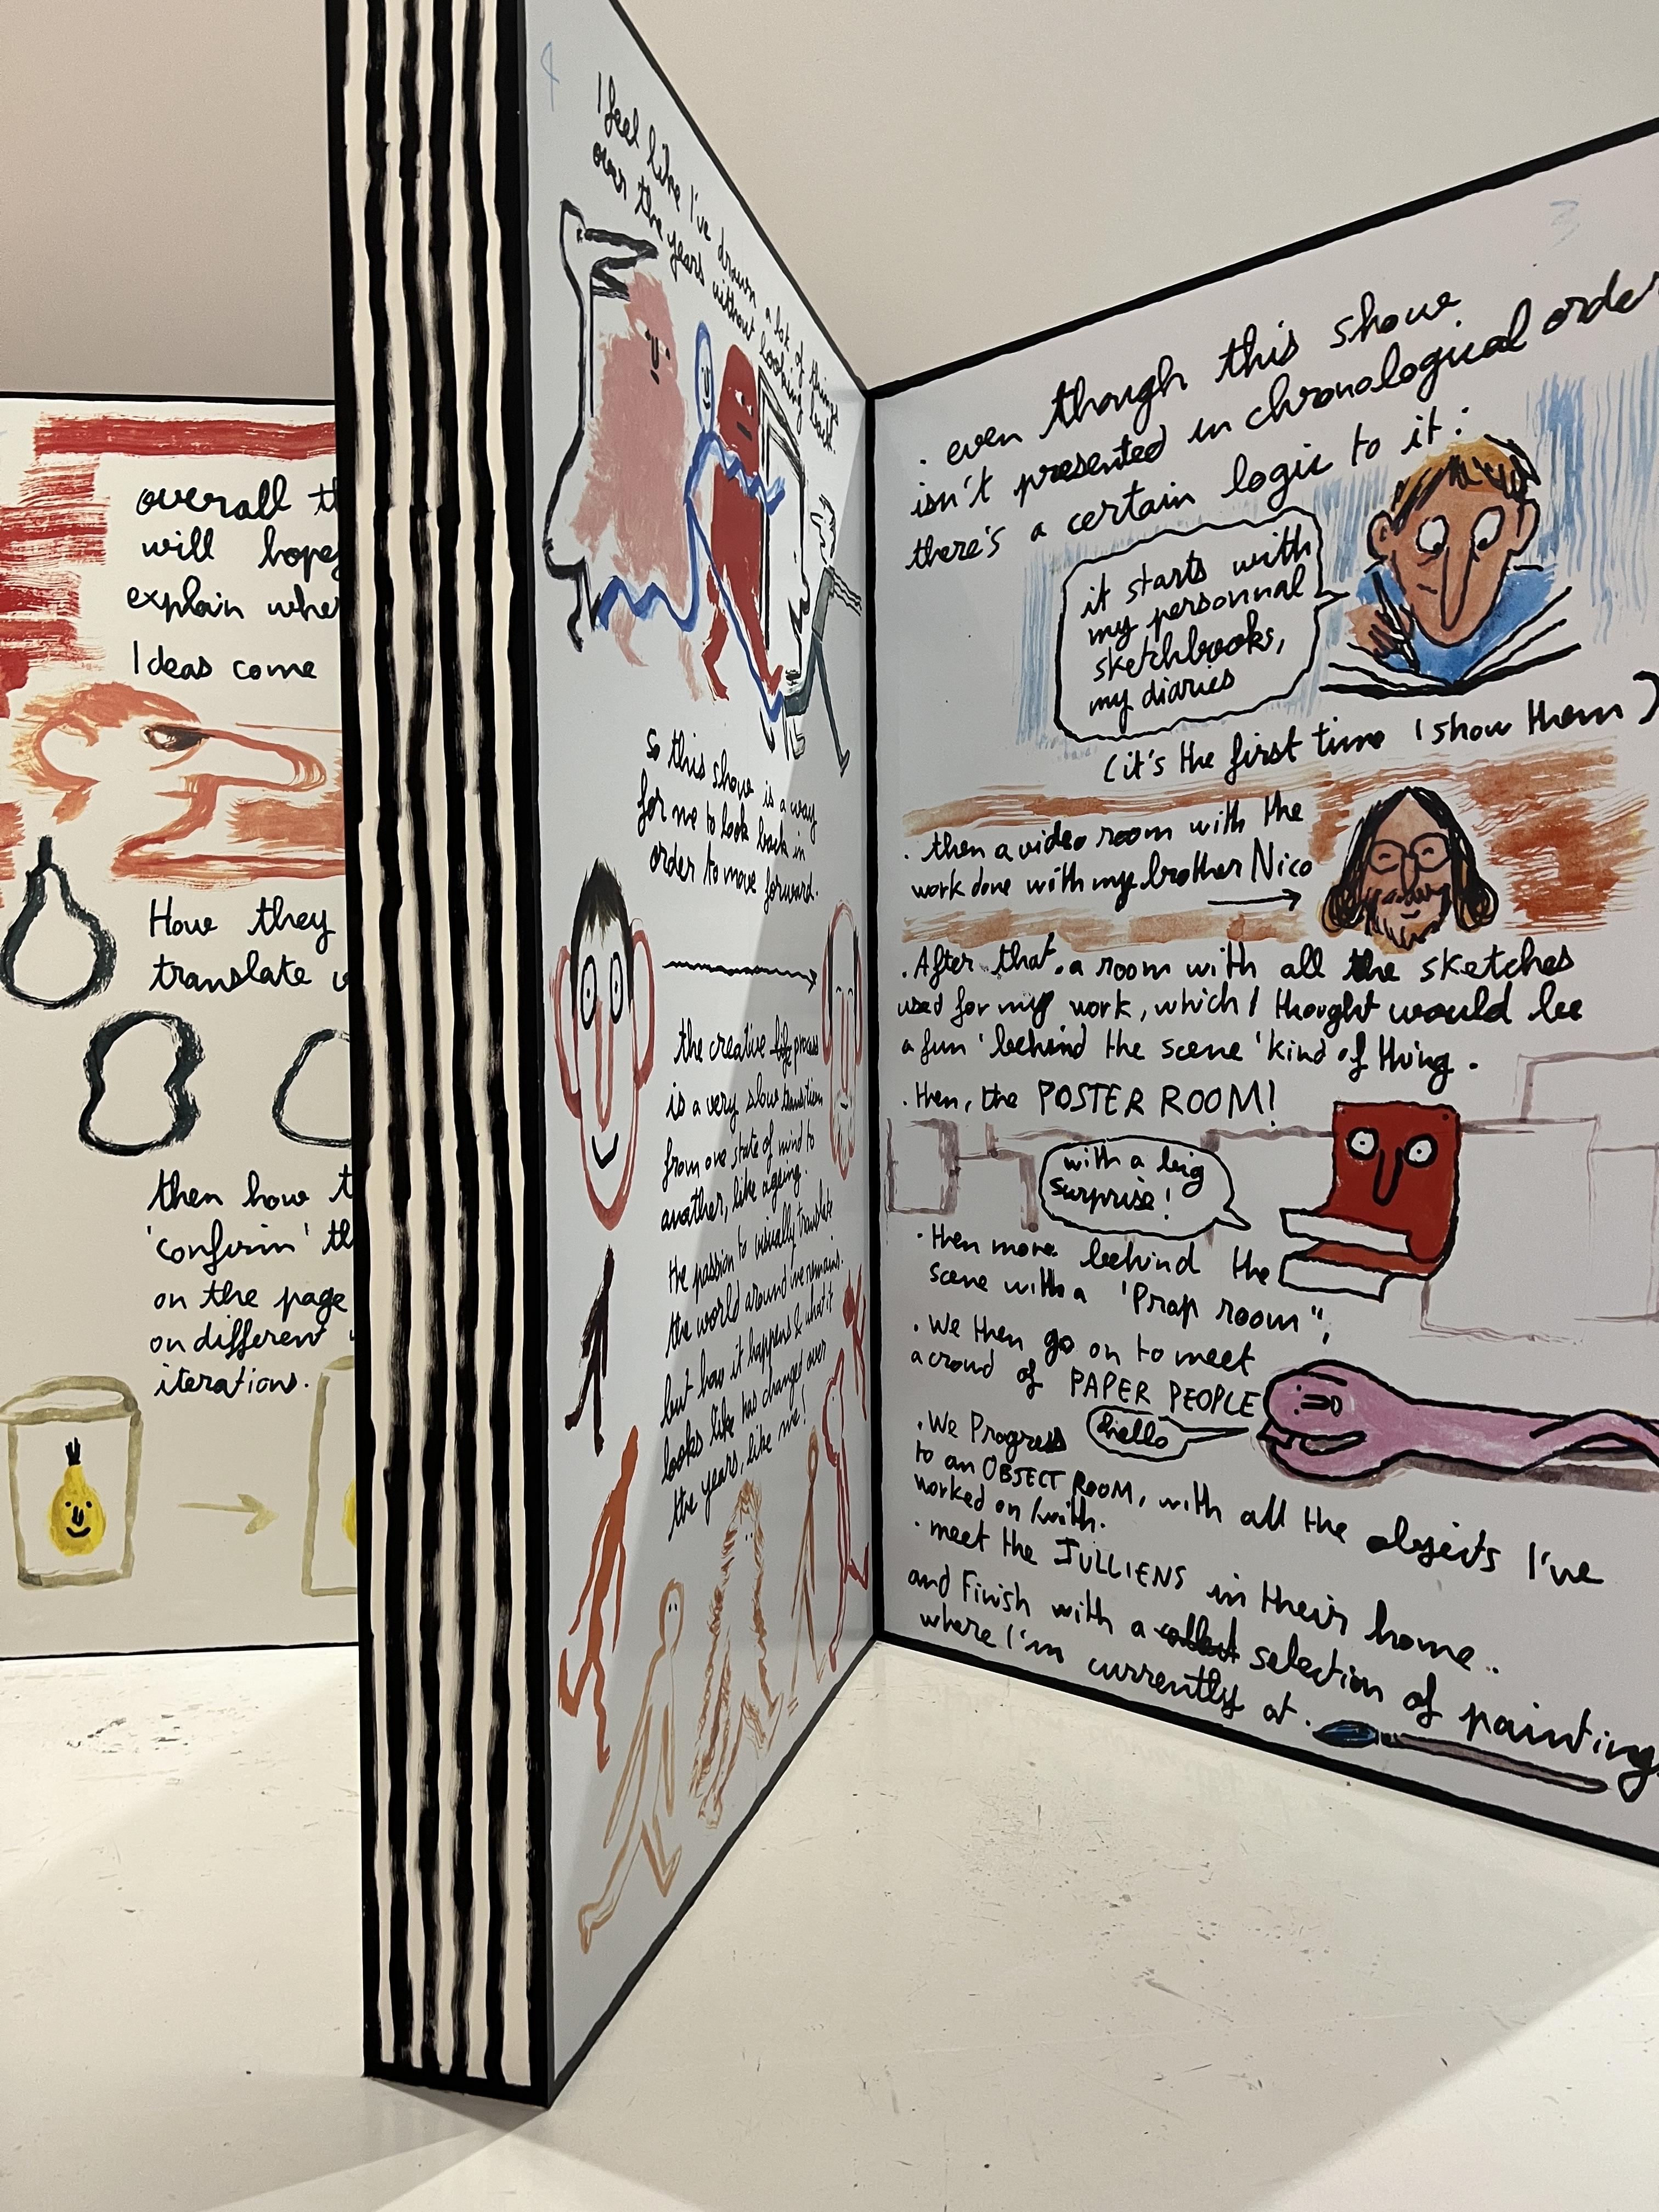 overall th
will hope
explain whe
Ideas come
How they
translate
then how t
'confirm' th
on the page
on different
iterations.
4
I feel like I've drawn a lot of things
over the years without looking back.
So this show is a way
for me to look back in
order to move forward.
the creative life process
is a very slow transition
from one state of mind to
another, like ageing.
the passion to visually translate
the world around me remains.
but how it happens & what it
looks like has changed over
the years, like me!
3
. even though this show
isn't presented in chronological order
there's a certain logic to it:
it starts with
my personnal
sketchbooks,
my diaries
(it's the first time I show them)
. then a video room with the
work done with my brother Nico
. After that, a room with all the sketches
used for my work, which I thought would be
a fun 'behind the scene' kind of thing.
. then, the POSTER ROOM!
with a big
surprise!
. then more behind the
scene with a 'Prop room",
. We then go on to meet
a crowd of PAPER PEOPLE
hello
. We Progress
to an OBJECT ROOM, with all the objects I've
worked on/with.
. meet the JULLIENS in their home..
and Finish with a selection of painting
where I'm currently at.